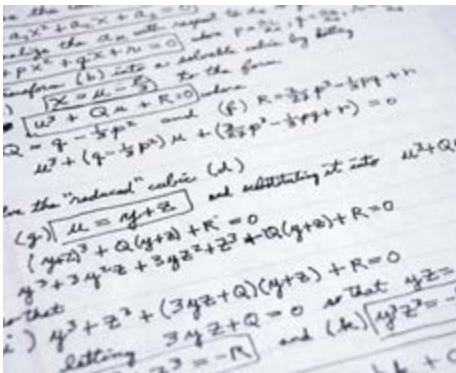 a₃x³ + a₂x² + a₁x + a₀ = 0
the with respect to a₃
+ px² + qx + r = 0 where p =
(b) into a solvable cubic by letting
x = u - p/3 to the form
u³ + Qu + R = 0 where
Q = q - ⅓p² and (f) R = 2/27 p³ - ⅓pq + r
u³ + (q - ⅓p²) u + (2/27 p³ - ⅓pq + r) = 0
the "reduced" cubic (d)
(g) u = y + z and substituting it into u³ + Qu
(y+z)³ + Q(y+z) + R = 0
y³ + 3y²z + 3yz² + z³ + Q(y+z) + R = 0
so that
) y³ + z³ + (3yz + Q)(y+z) + R = 0
letting 3yz + Q = 0 so that yz =
z³ = -R and (k) y³z³ = -